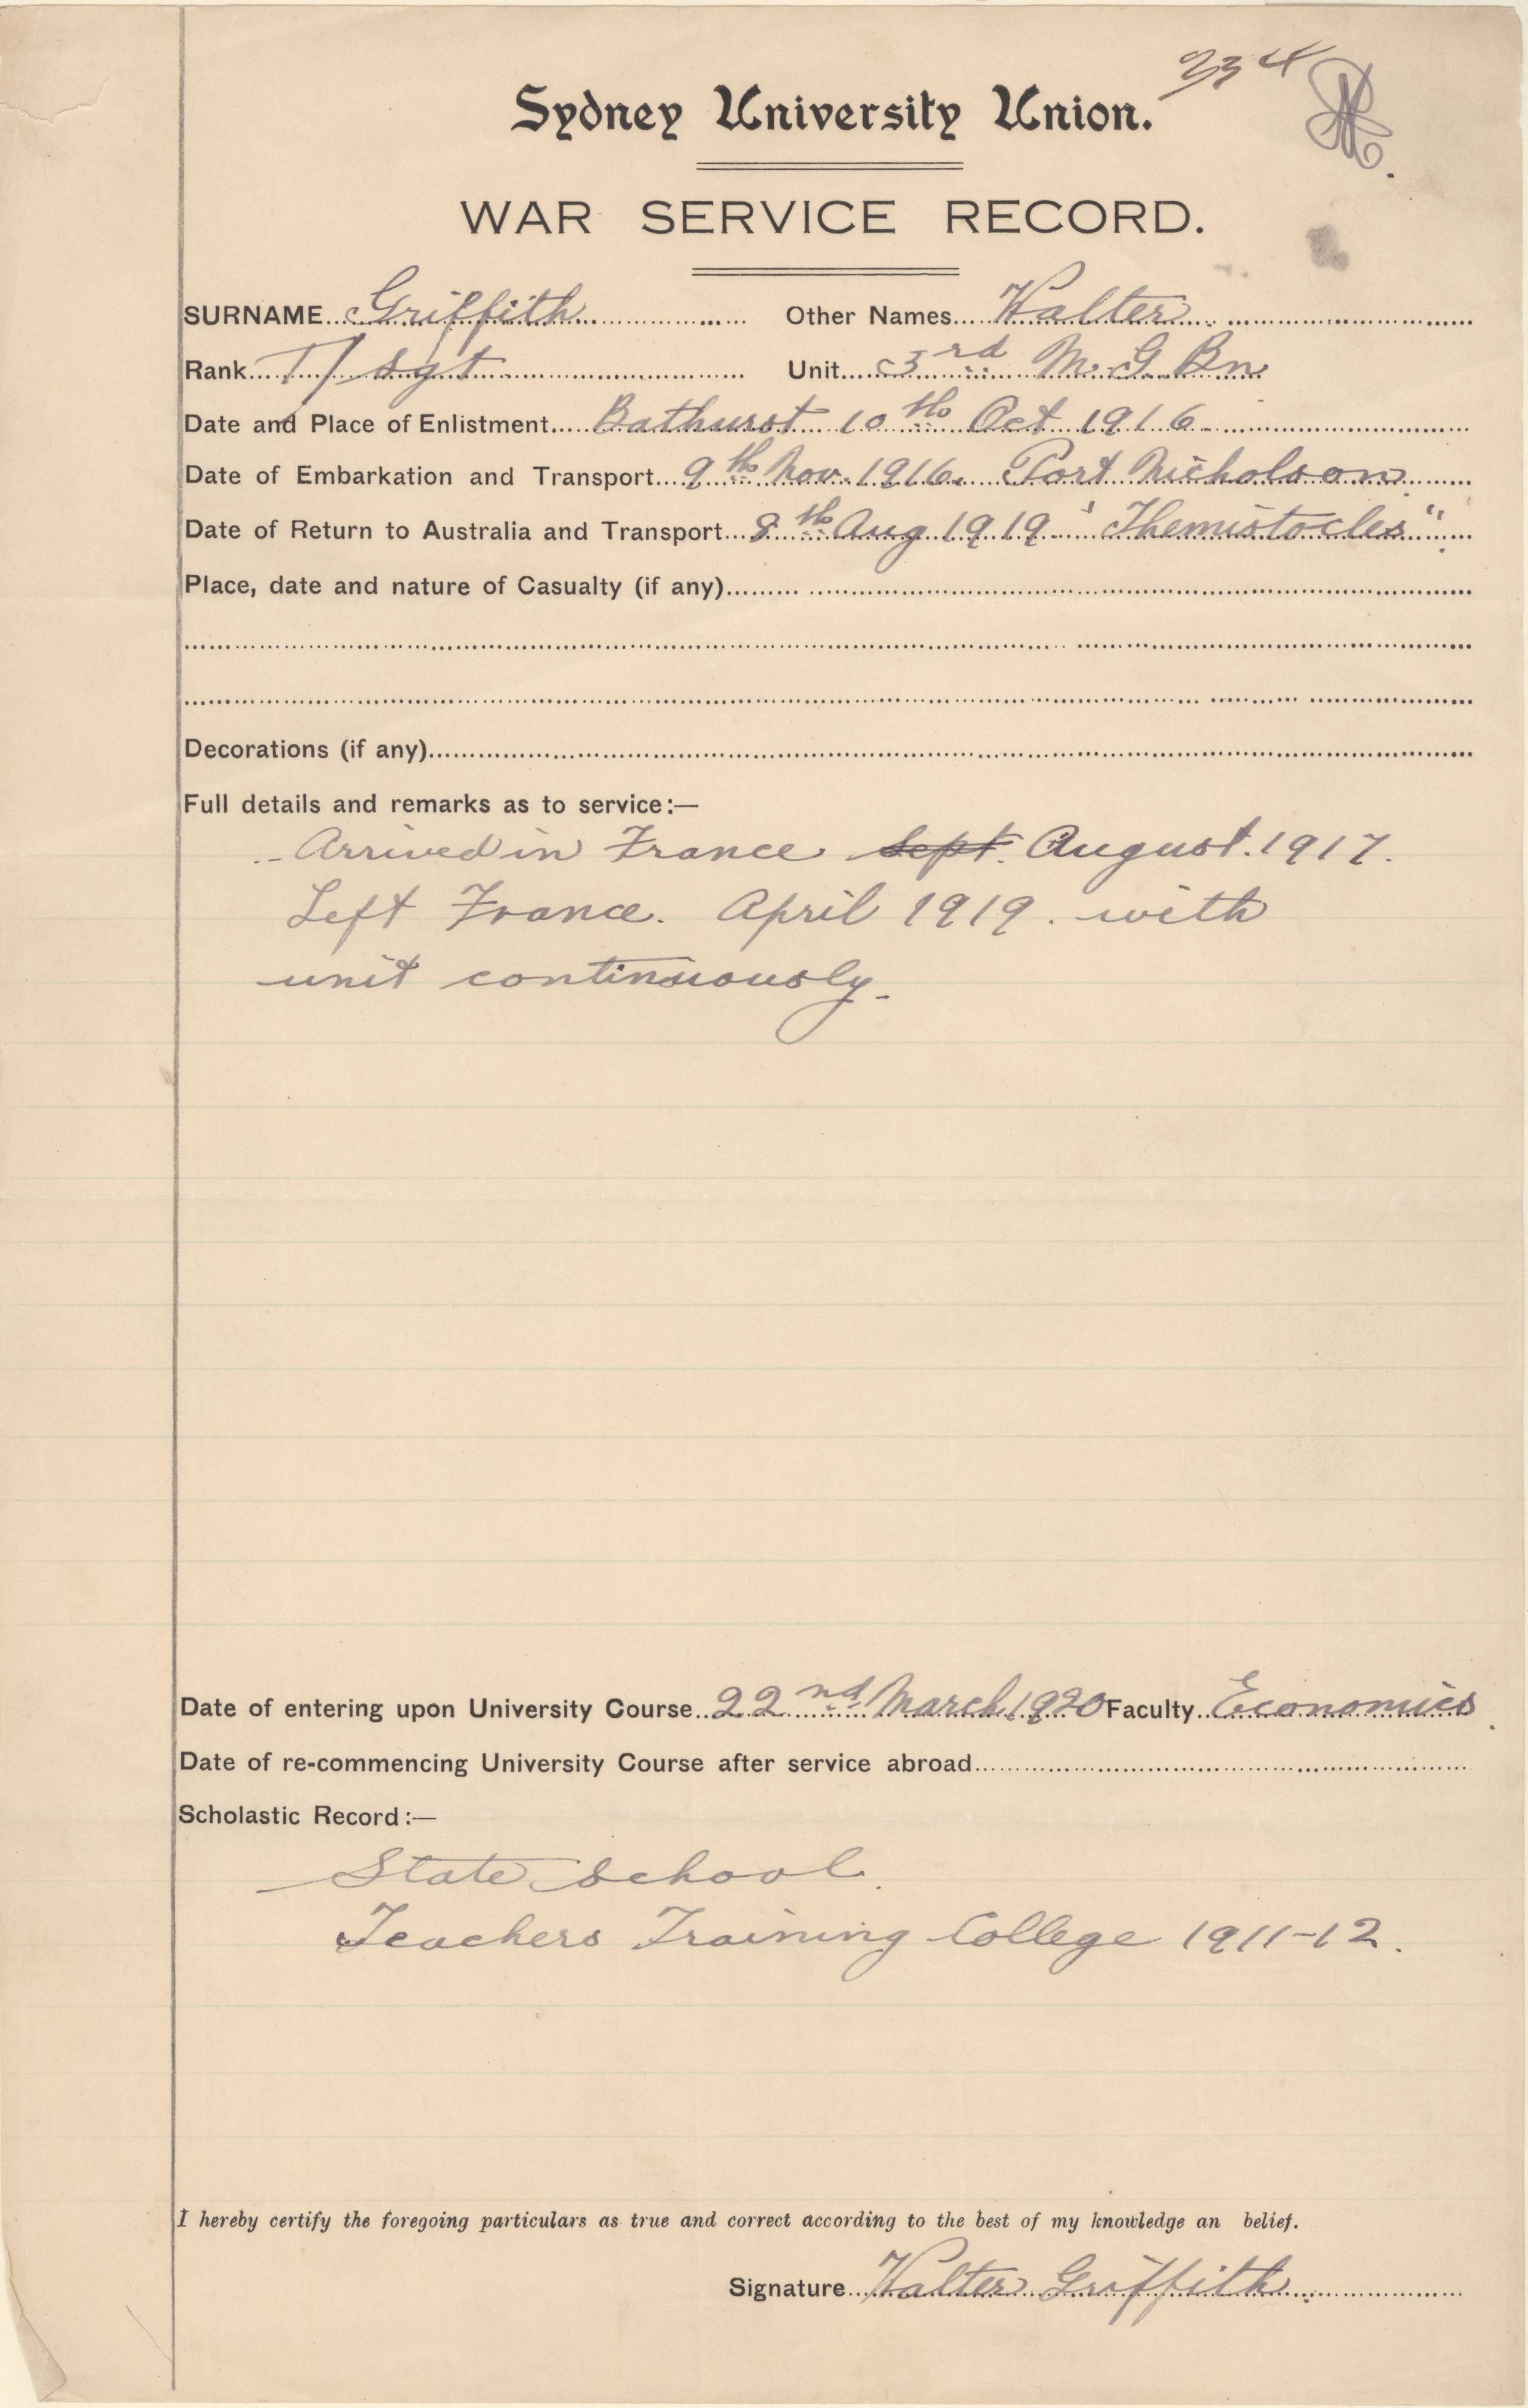 234
Sydney University Union.
WAR SERVICE RECORD.
SURNAME Griffith Other Names Walter
Rank T/Sgt Unit 3rd M.G. Bn.
Date and Place of Enlistment Bathurst 10th Oct 1916
Date of Embarkation and Transport 9th Nov. 1916. Port Nicholson
Date of Return to Australia and Transport 8th Aug 1919 "Themistocles"
Place, date and nature of Casualty (if any)
Decorations (if any)
Full details and remarks as to service:—
Arrived in France Sept. August. 1917.
Left France. April 1919. with
unit continuously.
Date of entering upon University Course 22nd March 1920 Faculty Economics
Date of re-commencing University Course after service abroad
Scholastic Record:—
State School.
Teachers Training College 1911-12.
I hereby certify the foregoing particulars as true and correct according to the best of my knowledge an belief.
Signature Walter Griffith